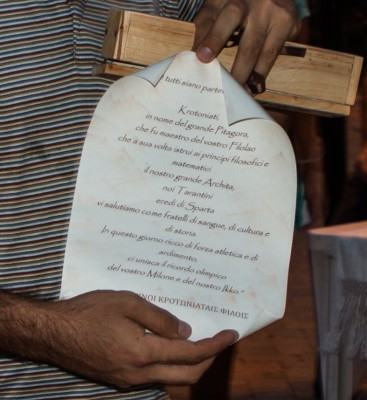 tutti siano partec
Krotoniati,
in nome del grande Pitagora,
che fu maestro del vostro Filolao
che a sua volta istruì ai principi filosofici e
matematici
il nostro grande Archita,
noi Tarantini
eredi di Sparta
vi salutiamo come fratelli di sangue, di cultura e
di storia.
In questo giorno ricco di forza atletica e di
ardimento,
ci uniaca il ricordo olimpico
del vostro Milone e del nostro Ikko."
ΙΝΟΙ ΚΡΟΤΩΝΙΑΤΑΙΣ ΦΙΛΟΙΣ